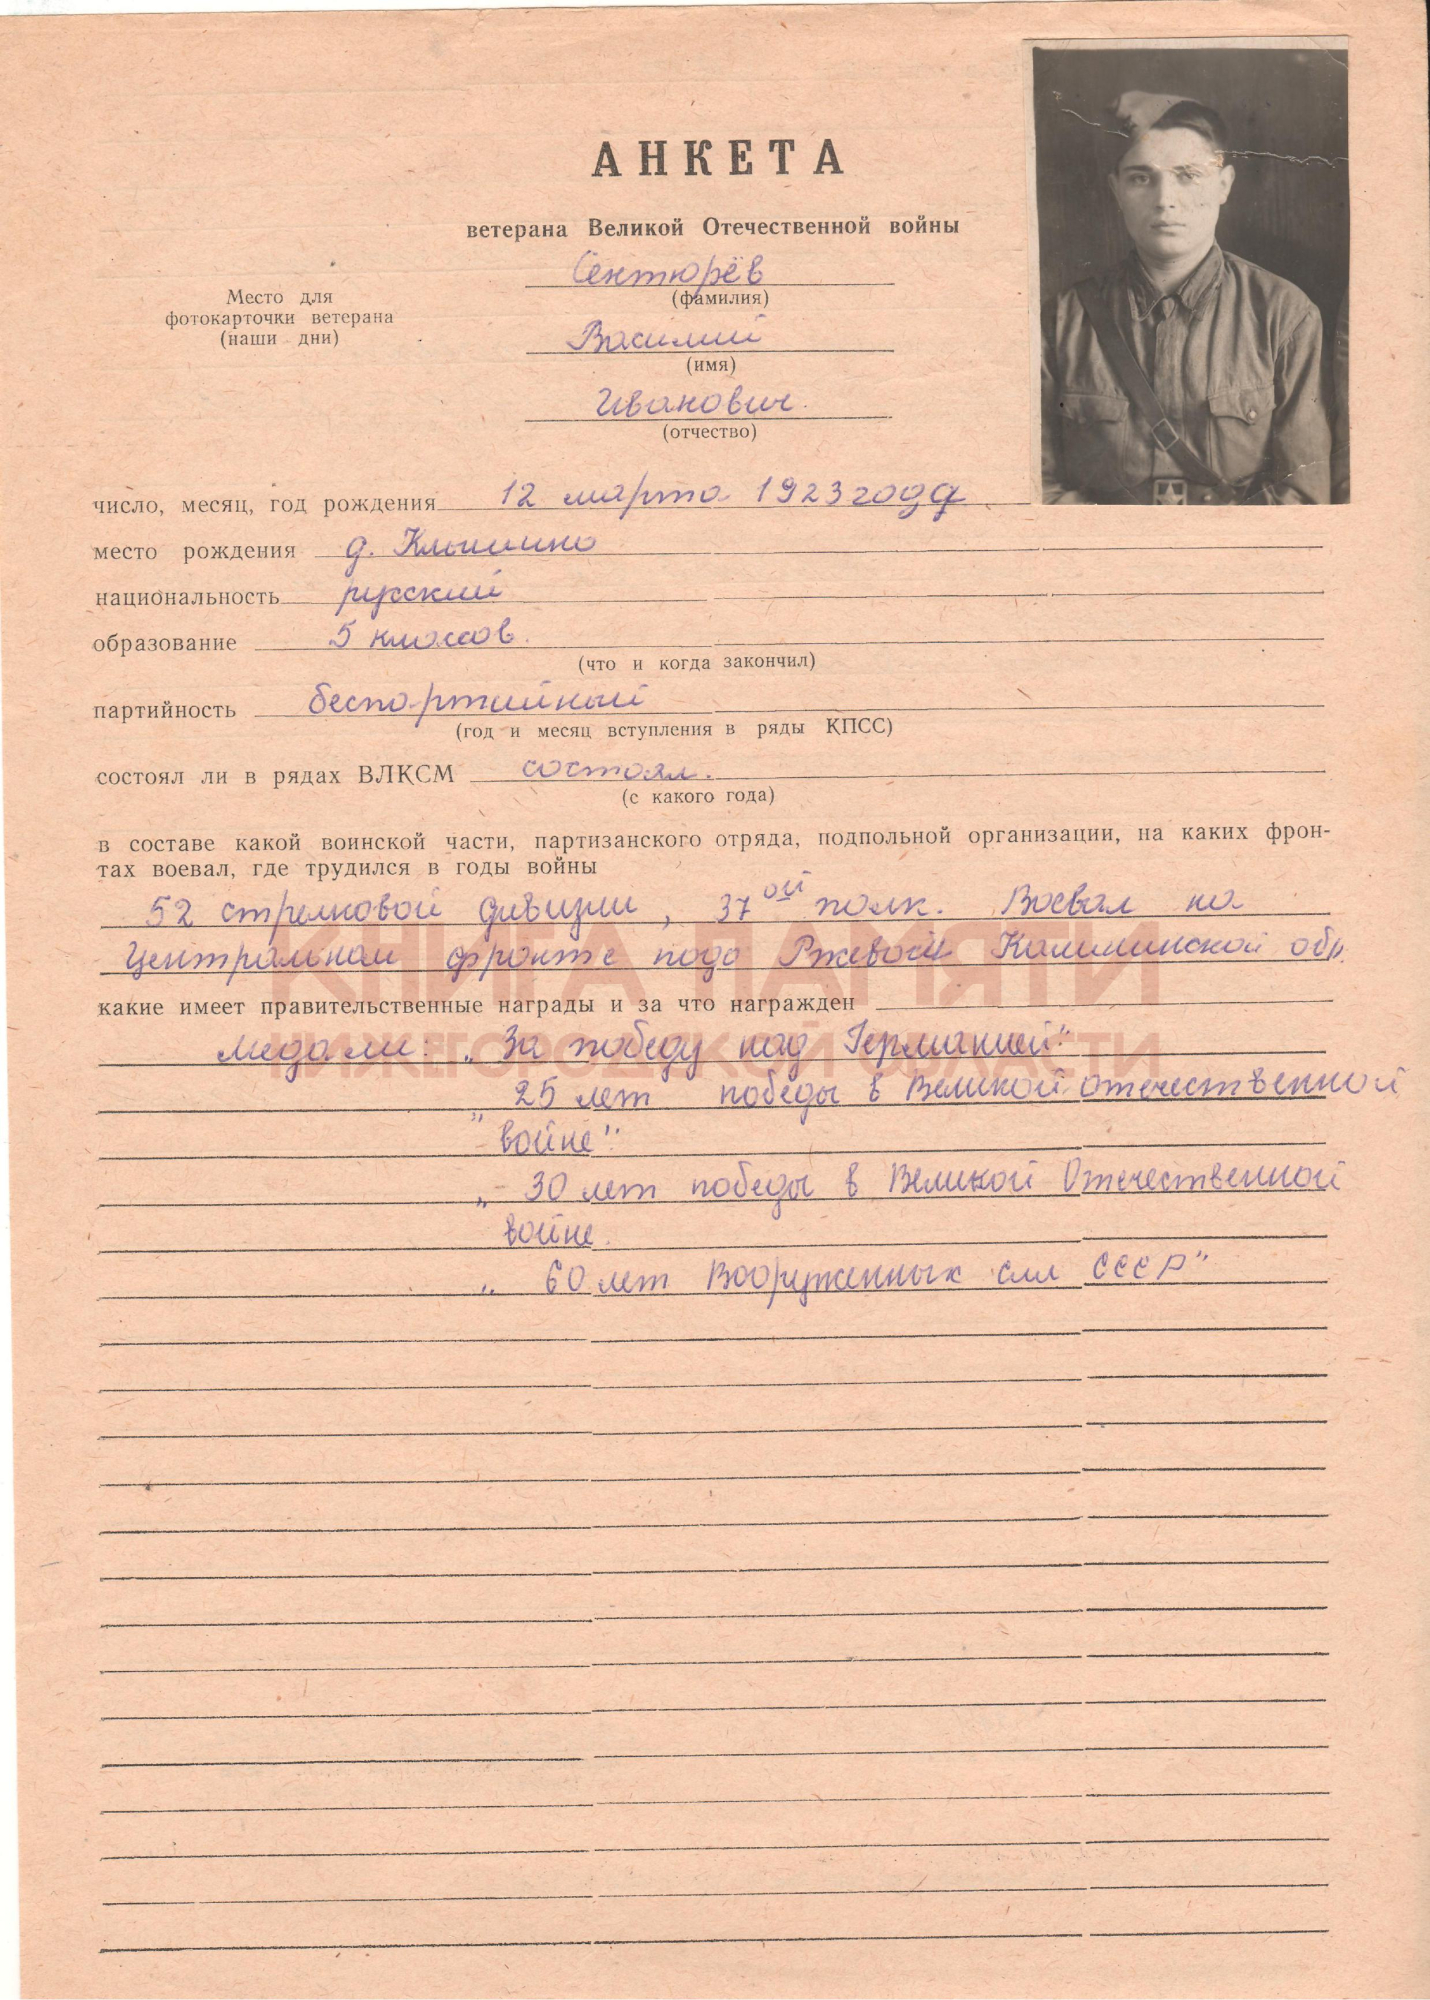 АНКЕТА
ветерана Великой Отечественной войны
Сентюрёв
(фамилия)
Место для
фотокарточки ветерана
(наши дни)
Василий
(имя)
Иванович.
(отчество)
число, месяц, год рождения 12 марта 1923 года
место рождения д. Клышино
национальность русский
образование 5 классов.
(что и когда закончил)
партийность беспартийный
(год и месяц вступления в ряды КПСС)
состоял ли в рядах ВЛКСМ состоял.
(с какого года)
в составе какой воинской части, партизанского отряда, подпольной организации, на каких фрон-
тах воевал, где трудился в годы войны
52 стрелковой дивизии, 37ой полк. Воевал на
Центральном фронте подо Ржевом Калининской обл.
КНИГА ПАМЯТИ
какие имеет правительственные награды и за что награжден
НИЖЕГОРОДСКОЙ ОБЛАСТИ
Медали: „За победу над Германией"
„ 25 лет победы в Великой отечественной
войне".
„ 30 лет победы в Великой Отечественной
войне.
„ 60 лет Вооруженных сил СССР"